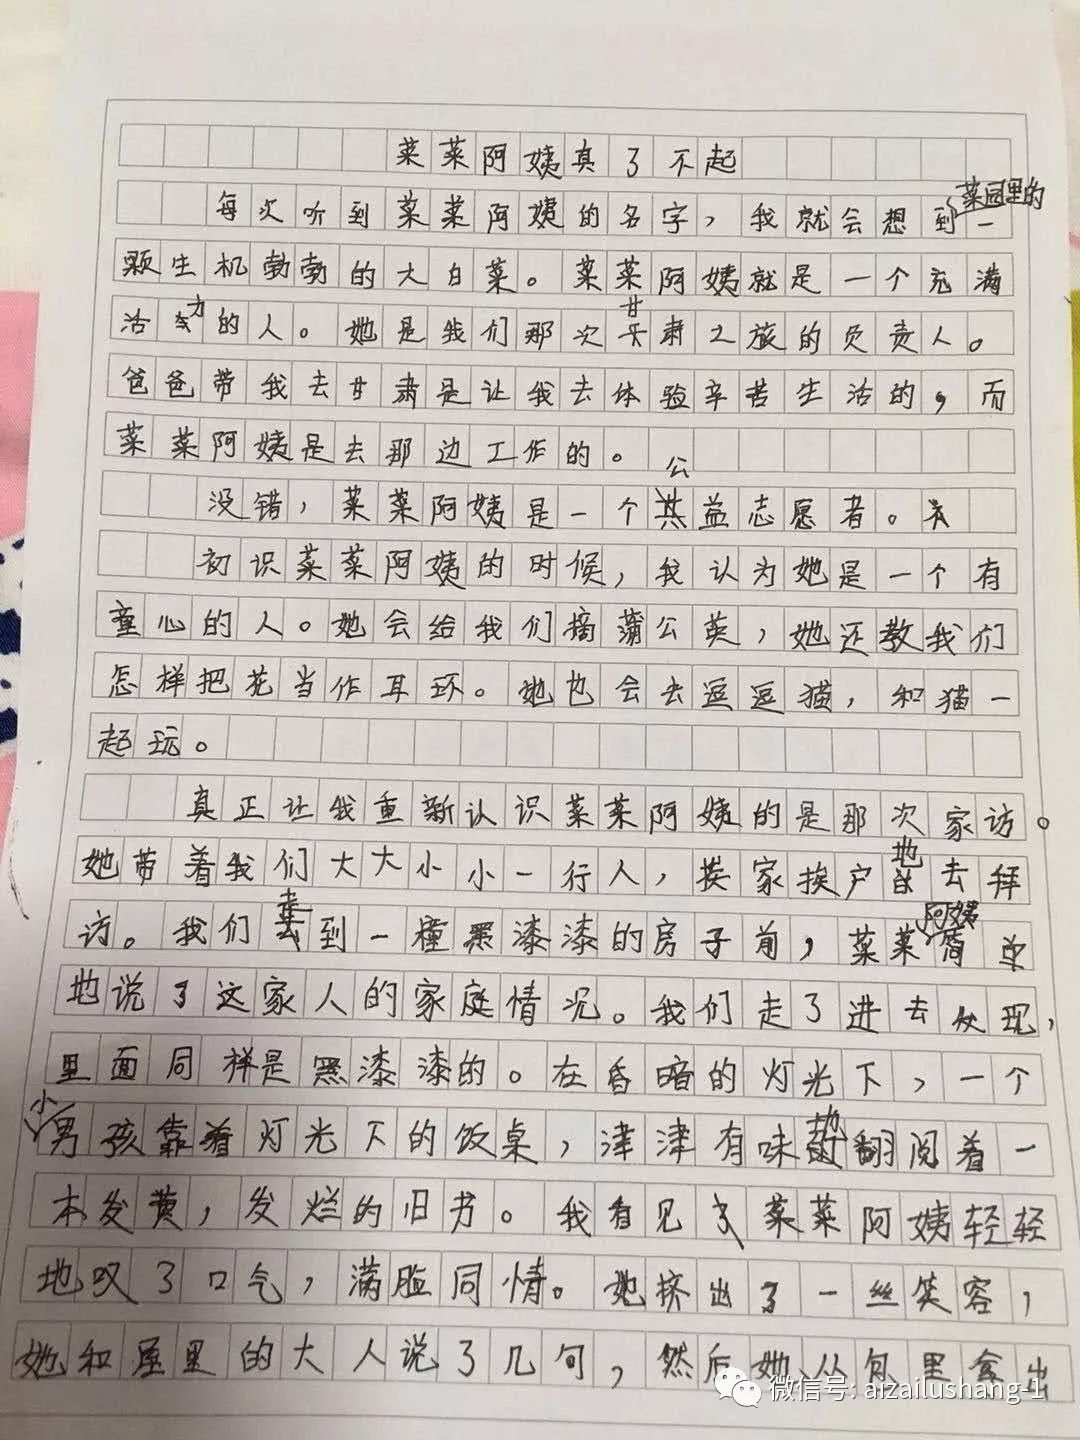 菜菜阿姨真了不起
每次听到菜菜阿姨的名字，我就会想到菜园里的一
颗生机勃勃的大白菜。菜菜阿姨就是一个充满
活力的人。她是我们那次甘肃之旅的负责人。
爸爸带我去甘肃是让我去体验辛苦生活的，而
菜菜阿姨是去那边工作的。
没错，菜菜阿姨是一个公益志愿者。
初识菜菜阿姨的时候，我认为她是一个有
童心的人。她会给我们摘蒲公英，她还教我们
怎样把花当作耳环。她也会去逗逗猫，和猫一
起玩。
真正让我重新认识菜菜阿姨的是那次家访。
她带着我们大大小小一行人，挨家挨户地去拜
访。我们走到一幢黑漆漆的房子前，菜菜阿姨简单
地说了这家人的家庭情况。我们走了进去发现，
里面同样是黑漆漆的。在昏暗的灯光下，一个
小男孩靠着灯光下的饭桌，津津有味地翻阅着一
本发黄，发烂的旧书。我看见了菜菜阿姨轻轻
地叹了口气，满脸同情。她挤出了一丝笑容，
她和屋里的大人说了几句，然后她从包里拿出
微信号: aizailushang-1